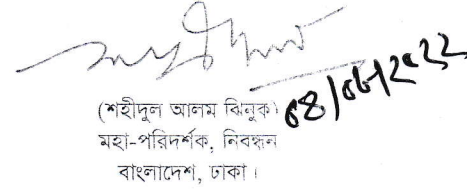 ০৪/০৮/২০২২
(শহীদুল আলম ঝিনুক)
মহা-পরিদর্শক, নিবন্ধন
বাংলাদেশ, ঢাকা।